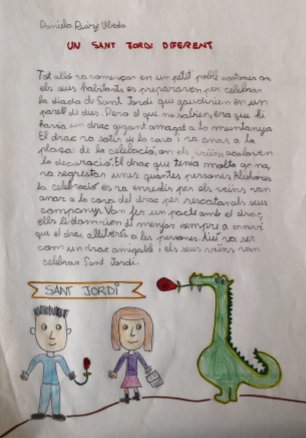 Danilo Ruiz Ubeda
UN SANT JORDI DIFERENT
Tot allò va començar en un petit poble costaner on
els seus habitants es preparaven per celebrar
la diada de Sant Jordi que gaudirien en un
parell de dies. Pero el que no sabien, era que hi
havia un drac gegant amagat a la muntanya.
El drac va sortir de la cova i va anar a la
plaça de la celebració, on els veïns acabaven
la decoració. El drac que tenia molta gana,
va segrestar unes quantes persones. Aleshores
la celebració es va enredis per els veïns van
anar a la cova del drac per rescatar als seus
companys. Van fer un pacte amb el drac,
ells li donarien el menjar sempre a canvi
que el drac alliberés a les persones. Així va ser
com un drac amigable i els seus veïns van
celebrar Sant Jordi.
SANT JORDI